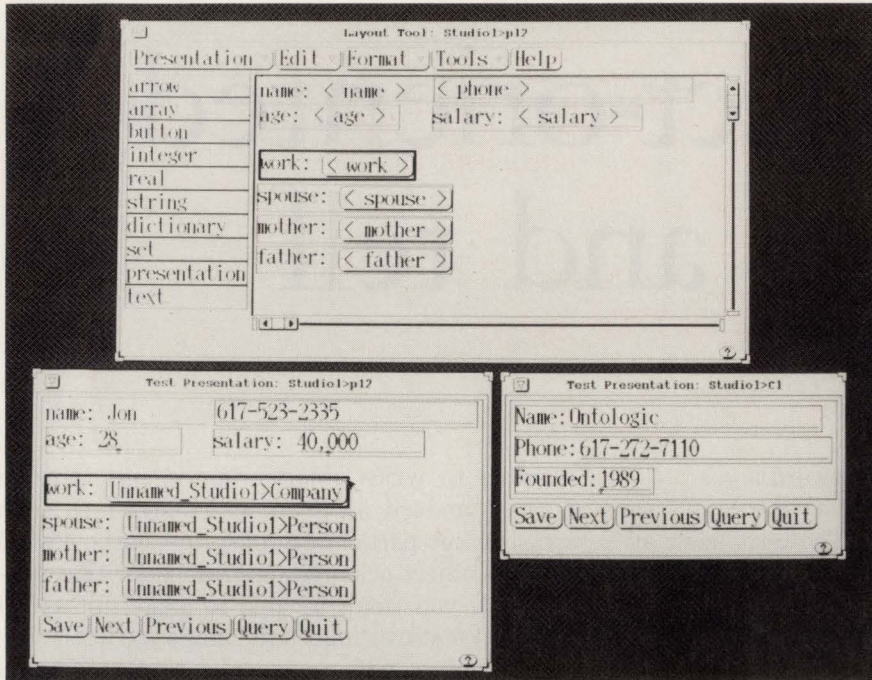 Layout Tool: Studio1>p12
Presentation Edit Format Tools Help
arrow
array
button
integer
real
string
dictionary
set
presentation
text
name: < name > < phone >
age: < age > salary: < salary >
work: < work >
spouse: < spouse >
mother: < mother >
father: < father >
Test Presentation: Studio1>p12
name: Jon 617-523-2335
age: 28 salary: 40,000
work: Unnamed_Studio1>Company
spouse: Unnamed_Studio1>Person
mother: Unnamed_Studio1>Person
father: Unnamed_Studio1>Person
Save Next Previous Query Quit
Test Presentation: Studio1>C1
Name: Ontologic
Phone: 617-272-7110
Founded: 1989
Save Next Previous Query Quit